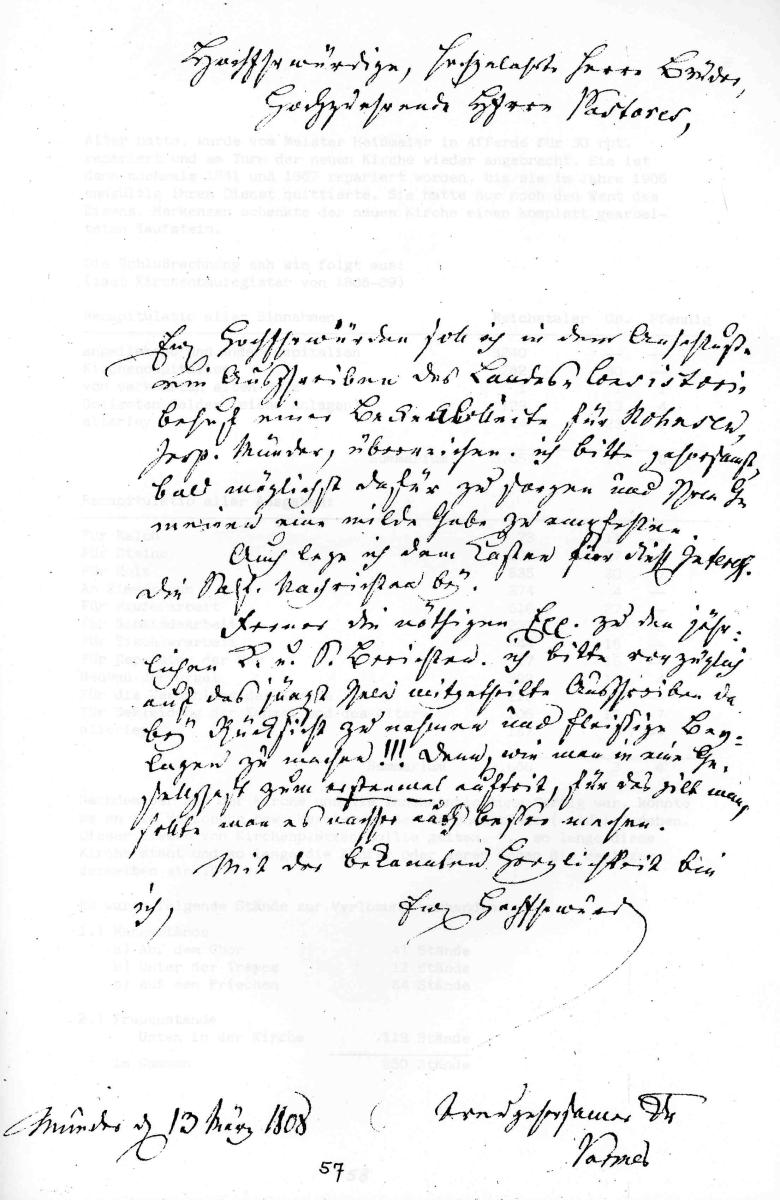 Hochehrwürdige, hochgelahrte Herrn Brüder,
Hochzuehrende Herrn Pastores,
Ew Hochehrwürden soll ich in dem Anschluße
ein Ausschreiben des Landes Consistorii
behuf einer Beckencollecte für Rohnsen,
Insp. Münder, überreichen. ich bitte gehorsamst,
bald möglichst dafür zu sorgen und Ihren Ge
meinen eine milde Gabe zu empfehlen.
Auch lege ich dem Kasten für dieß Interess.
die Nachrichten bey.
Ferner die nöthigen Exx. zu den jähr-
lichen K. u. S. Berichten. ich bitte vorzüglich
auf das jüngst Ihnen mitgetheilte Ausschreiben da
bey Rücksicht zu nehmen und fleissige Bey-
lagen zu machen!!! Denn, wie man in eine Ge-
sellschaft zum erstenmal auftrit, für das gilt man,
sollte man es nachher auch besser machen.
Mit der bekannten Herzlichkeit bin
ich,
Ew Hochehrwürd
Münder d 13 März 1808
treugehorsamer Dr
57